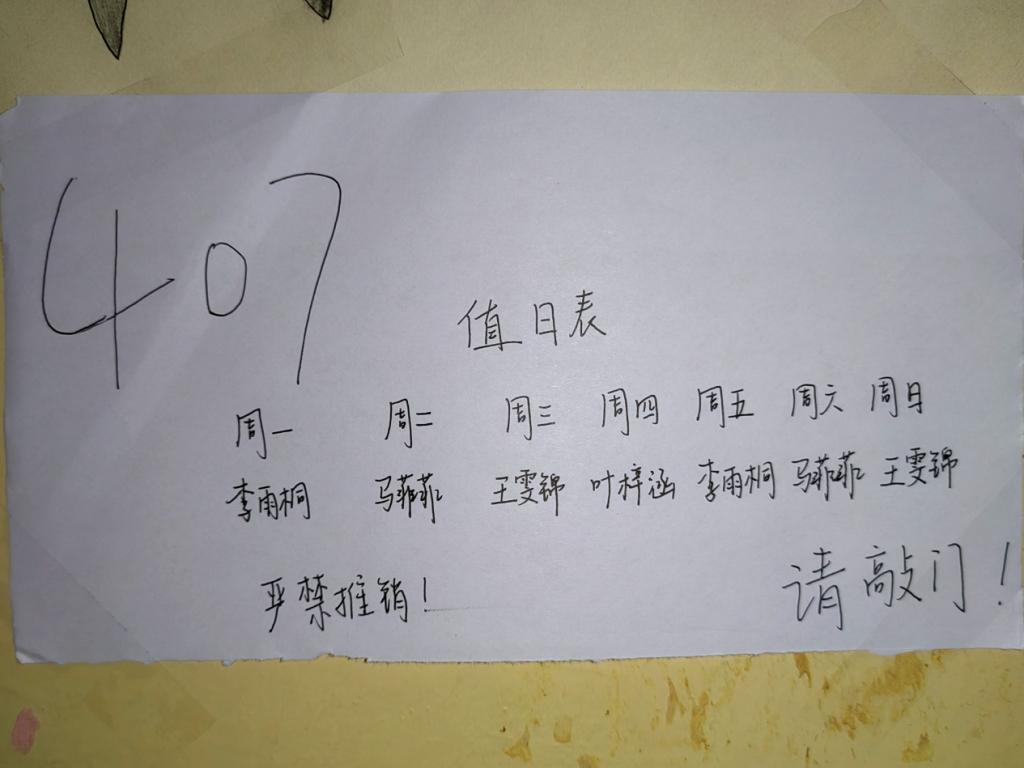 407
值日表
周一 周二 周三 周四 周五 周六 周日
李雨桐 马菲菲 王雯锦 叶梓涵 李雨桐 马菲菲 王雯锦
严禁推销！
请敲门！